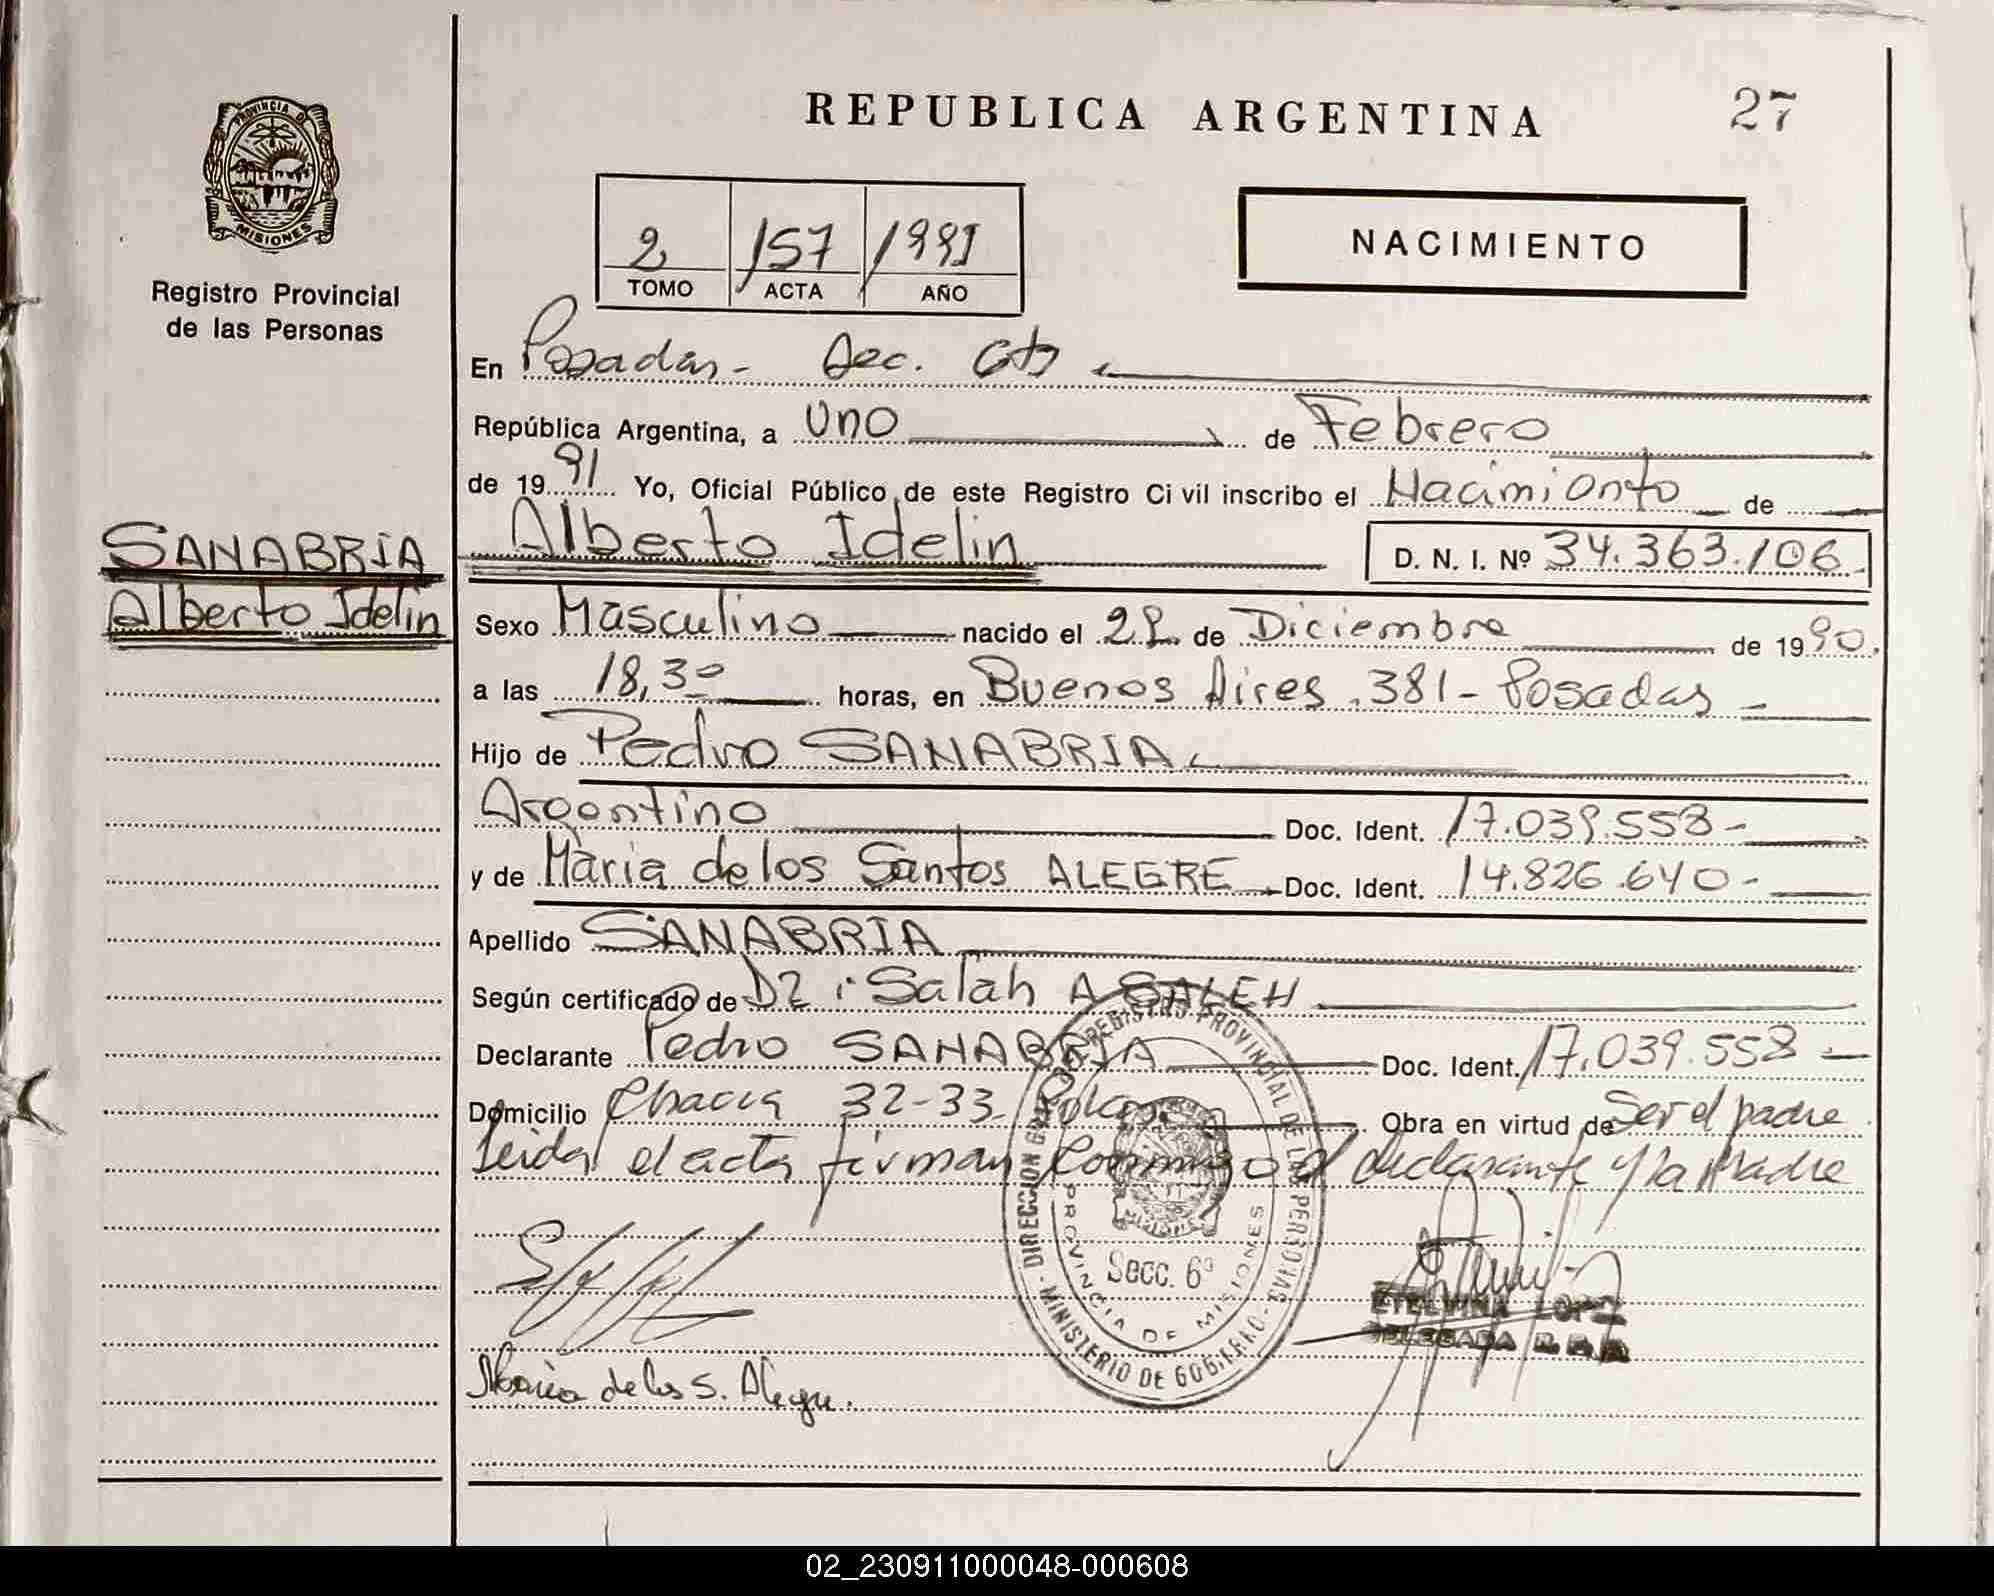 REPUBLICA ARGENTINA
27
PROVINCIA DE
MISIONES
Registro Provincial
de las Personas
2 /157 /1991
TOMO ACTA AÑO
NACIMIENTO
En Posadas - Sec. 6ta
República Argentina, a Uno de Febrero
de 1991 Yo, Oficial Público de este Registro Civil inscribo el Nacimiento de
SANABRIA
Alberto Idelin
Alberto Idelin D. N. I. Nº 34.363.106
Sexo Masculino nacido el 28 de Diciembre de 1990
a las 18,30 horas, en Buenos Aires 381 - Posadas -
Hijo de Pedro SANABRIA
Argentino Doc. Ident. 17.039.558 -
y de Maria de los Santos ALEGRE Doc. Ident. 14.826.640 -
Apellido SANABRIA
Según certificado de Dr: Salah A SALEH
Declarante Pedro SANABRIA Doc. Ident. 17.039.558 -
Domicilio Chacra 32-33 Obra en virtud de Ser el padre
Leida el acta firman conmigo el declarante y la Madre
DIRECCION GRAL. DE REGISTRO PROVINCIAL DE LAS PERSONAS - MINISTERIO DE GOBIERNO -
Secc. 6ª
PROVINCIA DE MISIONES
ETELVINA LOPEZ
DELEGADA R. P. P.
Maria de los S. Alegre.
02_230911000048-000608